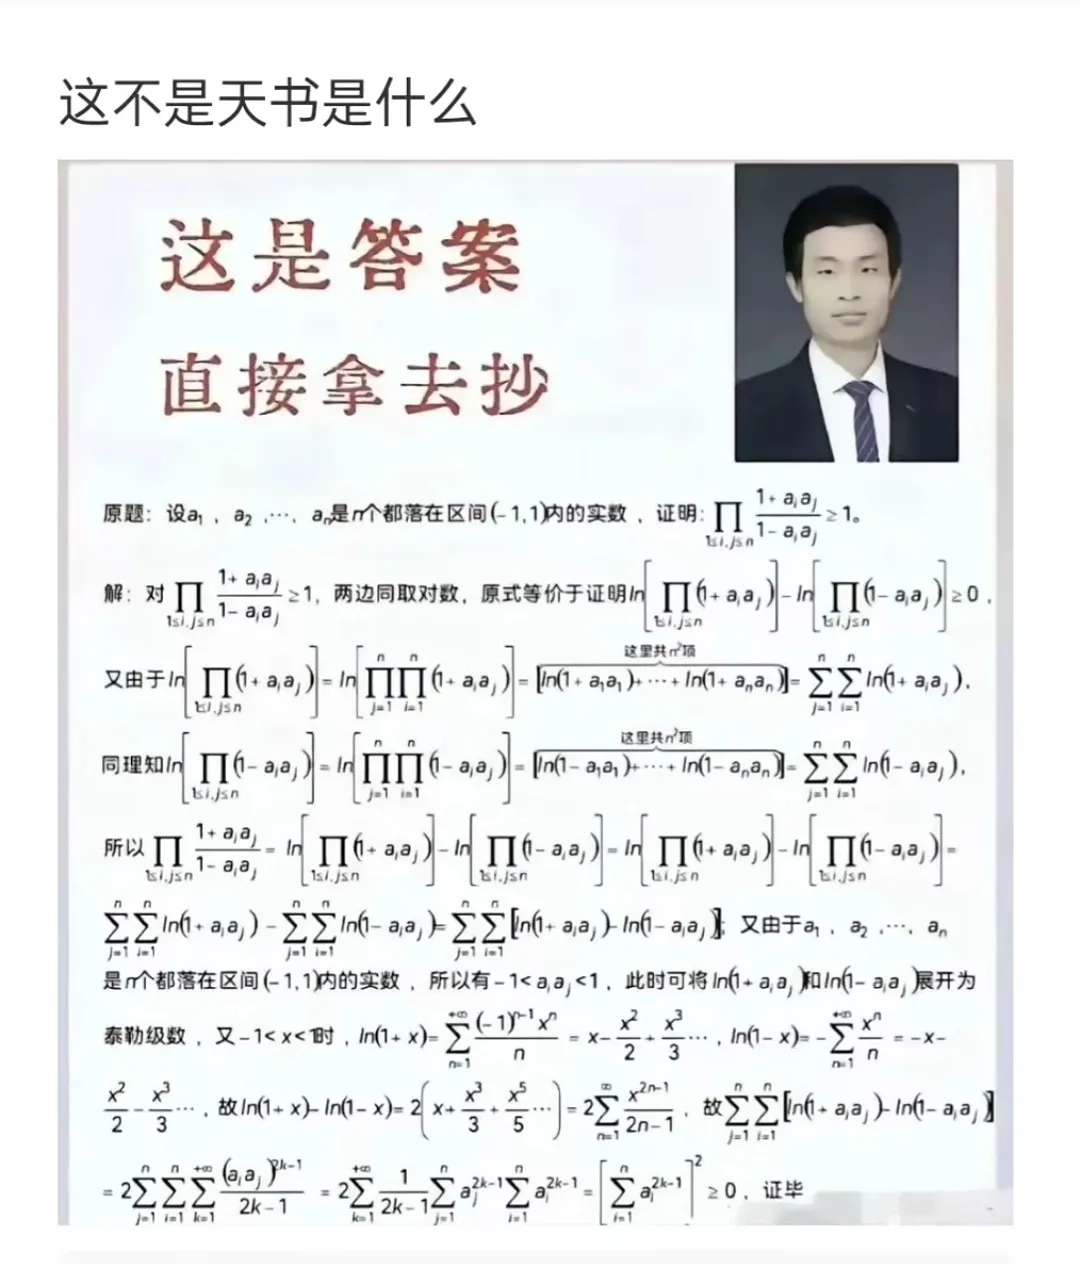 这不是天书是什么
这是答案
直接拿去抄
原题：设a₁，a₂，…，aₙ是n个都落在区间(-1,1)内的实数，证明：∏_{1≤i,j≤n} (1+aᵢaⱼ)/(1-aᵢaⱼ) ≥1。
解：对∏_{1≤i,j≤n} (1+aᵢaⱼ)/(1-aᵢaⱼ) ≥1，两边同取对数，原式等价于证明ln[∏_{1≤i,j≤n}(1+aᵢaⱼ)]-ln[∏_{1≤i,j≤n}(1-aᵢaⱼ)]≥0，
这里共n²项
又由于ln[∏_{1≤i,j≤n}(1+aᵢaⱼ)]=ln[∏_{j=1}^{n}∏_{i=1}^{n}(1+aᵢaⱼ)]=[ln(1+a₁a₁)+…+ln(1+aₙaₙ)]=∑_{j=1}^{n}∑_{i=1}^{n}ln(1+aᵢaⱼ)，
这里共n²项
同理知ln[∏_{1≤i,j≤n}(1-aᵢaⱼ)]=ln[∏_{j=1}^{n}∏_{i=1}^{n}(1-aᵢaⱼ)]=[ln(1-a₁a₁)+…+ln(1-aₙaₙ)]=∑_{j=1}^{n}∑_{i=1}^{n}ln(1-aᵢaⱼ)，
所以∏_{1≤i,j≤n} (1+aᵢaⱼ)/(1-aᵢaⱼ) = ln[∏_{1≤i,j≤n}(1+aᵢaⱼ)]-ln[∏_{1≤i,j≤n}(1-aᵢaⱼ)]=ln[∏_{1≤i,j≤n}(1+aᵢaⱼ)]-ln[∏_{1≤i,j≤n}(1-aᵢaⱼ)]=
∑_{j=1}^{n}∑_{i=1}^{n}ln(1+aᵢaⱼ)-∑_{j=1}^{n}∑_{i=1}^{n}ln(1-aᵢaⱼ)=∑_{j=1}^{n}∑_{i=1}^{n}[ln(1+aᵢaⱼ)-ln(1-aᵢaⱼ)]；又由于a₁，a₂，…，aₙ
是n个都落在区间(-1,1)内的实数，所以有-1<aᵢaⱼ<1，此时可将ln(1+aᵢaⱼ)和ln(1-aᵢaⱼ)展开为
泰勒级数，又-1<x<1时，ln(1+x)=∑_{n=1}^{+∞} (-1)^{n-1}xⁿ/n = x-x²/2+x³/3…，ln(1-x)=-∑_{n=1}^{+∞} xⁿ/n = -x-
x²/2-x³/3…，故ln(1+x)-ln(1-x)=2(x+x³/3+x⁵/5…)=2∑_{n=1}^{∞} x^{2n-1}/(2n-1)，故∑_{j=1}^{n}∑_{i=1}^{n}[ln(1+aᵢaⱼ)-ln(1-aᵢaⱼ)]
=2∑_{j=1}^{n}∑_{i=1}^{n}∑_{k=1}^{+∞} (aᵢaⱼ)^{2k-1}/(2k-1) =2∑_{k=1}^{+∞} 1/(2k-1) ∑_{j=1}^{n}aⱼ^{2k-1}∑_{i=1}^{n}aᵢ^{2k-1}=[∑_{i=1}^{n}aᵢ^{2k-1}]²≥0，证毕